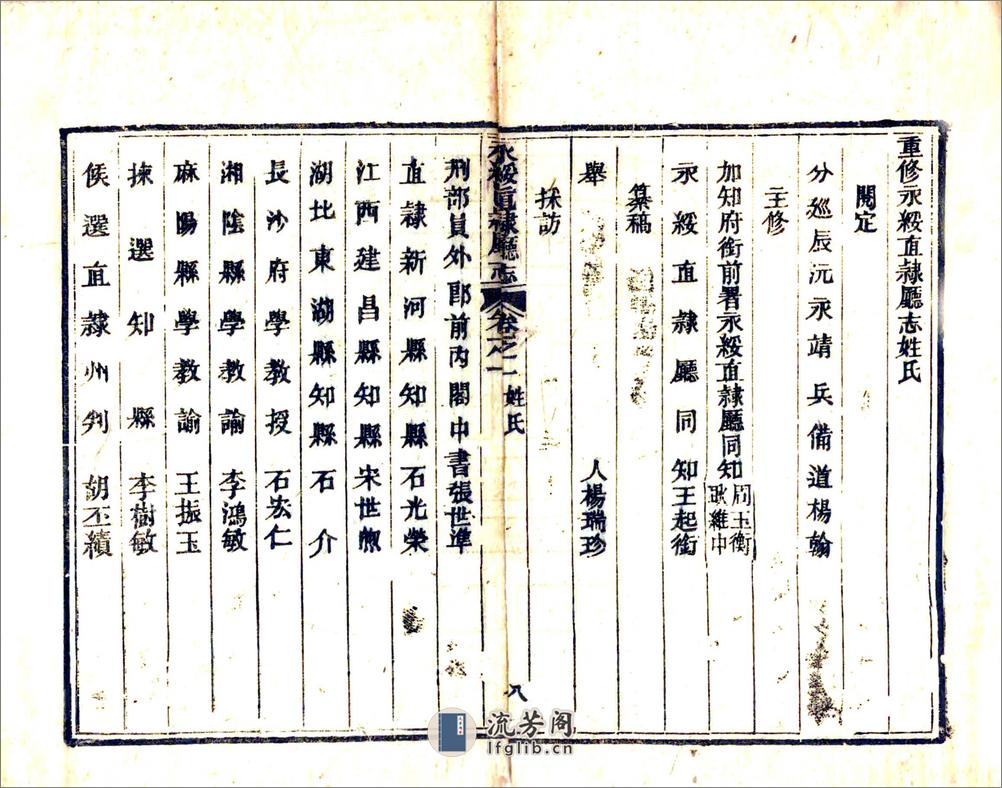 重修永綏直隸廳志姓氏
閱定
分巡辰沅永靖兵備道楊翰
主修
加知府銜前署永綏直隸廳同知周玉衡
耿維中
永綏直隸廳同知王起銜
纂稿
舉人楊瑞珍
採訪
永綏直隸廳志 卷之一 姓氏 八
刑部員外郎前內閣中書張世準
直隸新河縣知縣石光榮
江西建昌縣知縣宋世煦
湖北東湖縣知縣石介
長沙府學教授石宏仁
湘陰縣學教諭李鴻敏
麻陽縣學教諭王振玉
揀選知縣李樹敏
候選直隸州判胡丕績
流芳阁
lfglib.cn